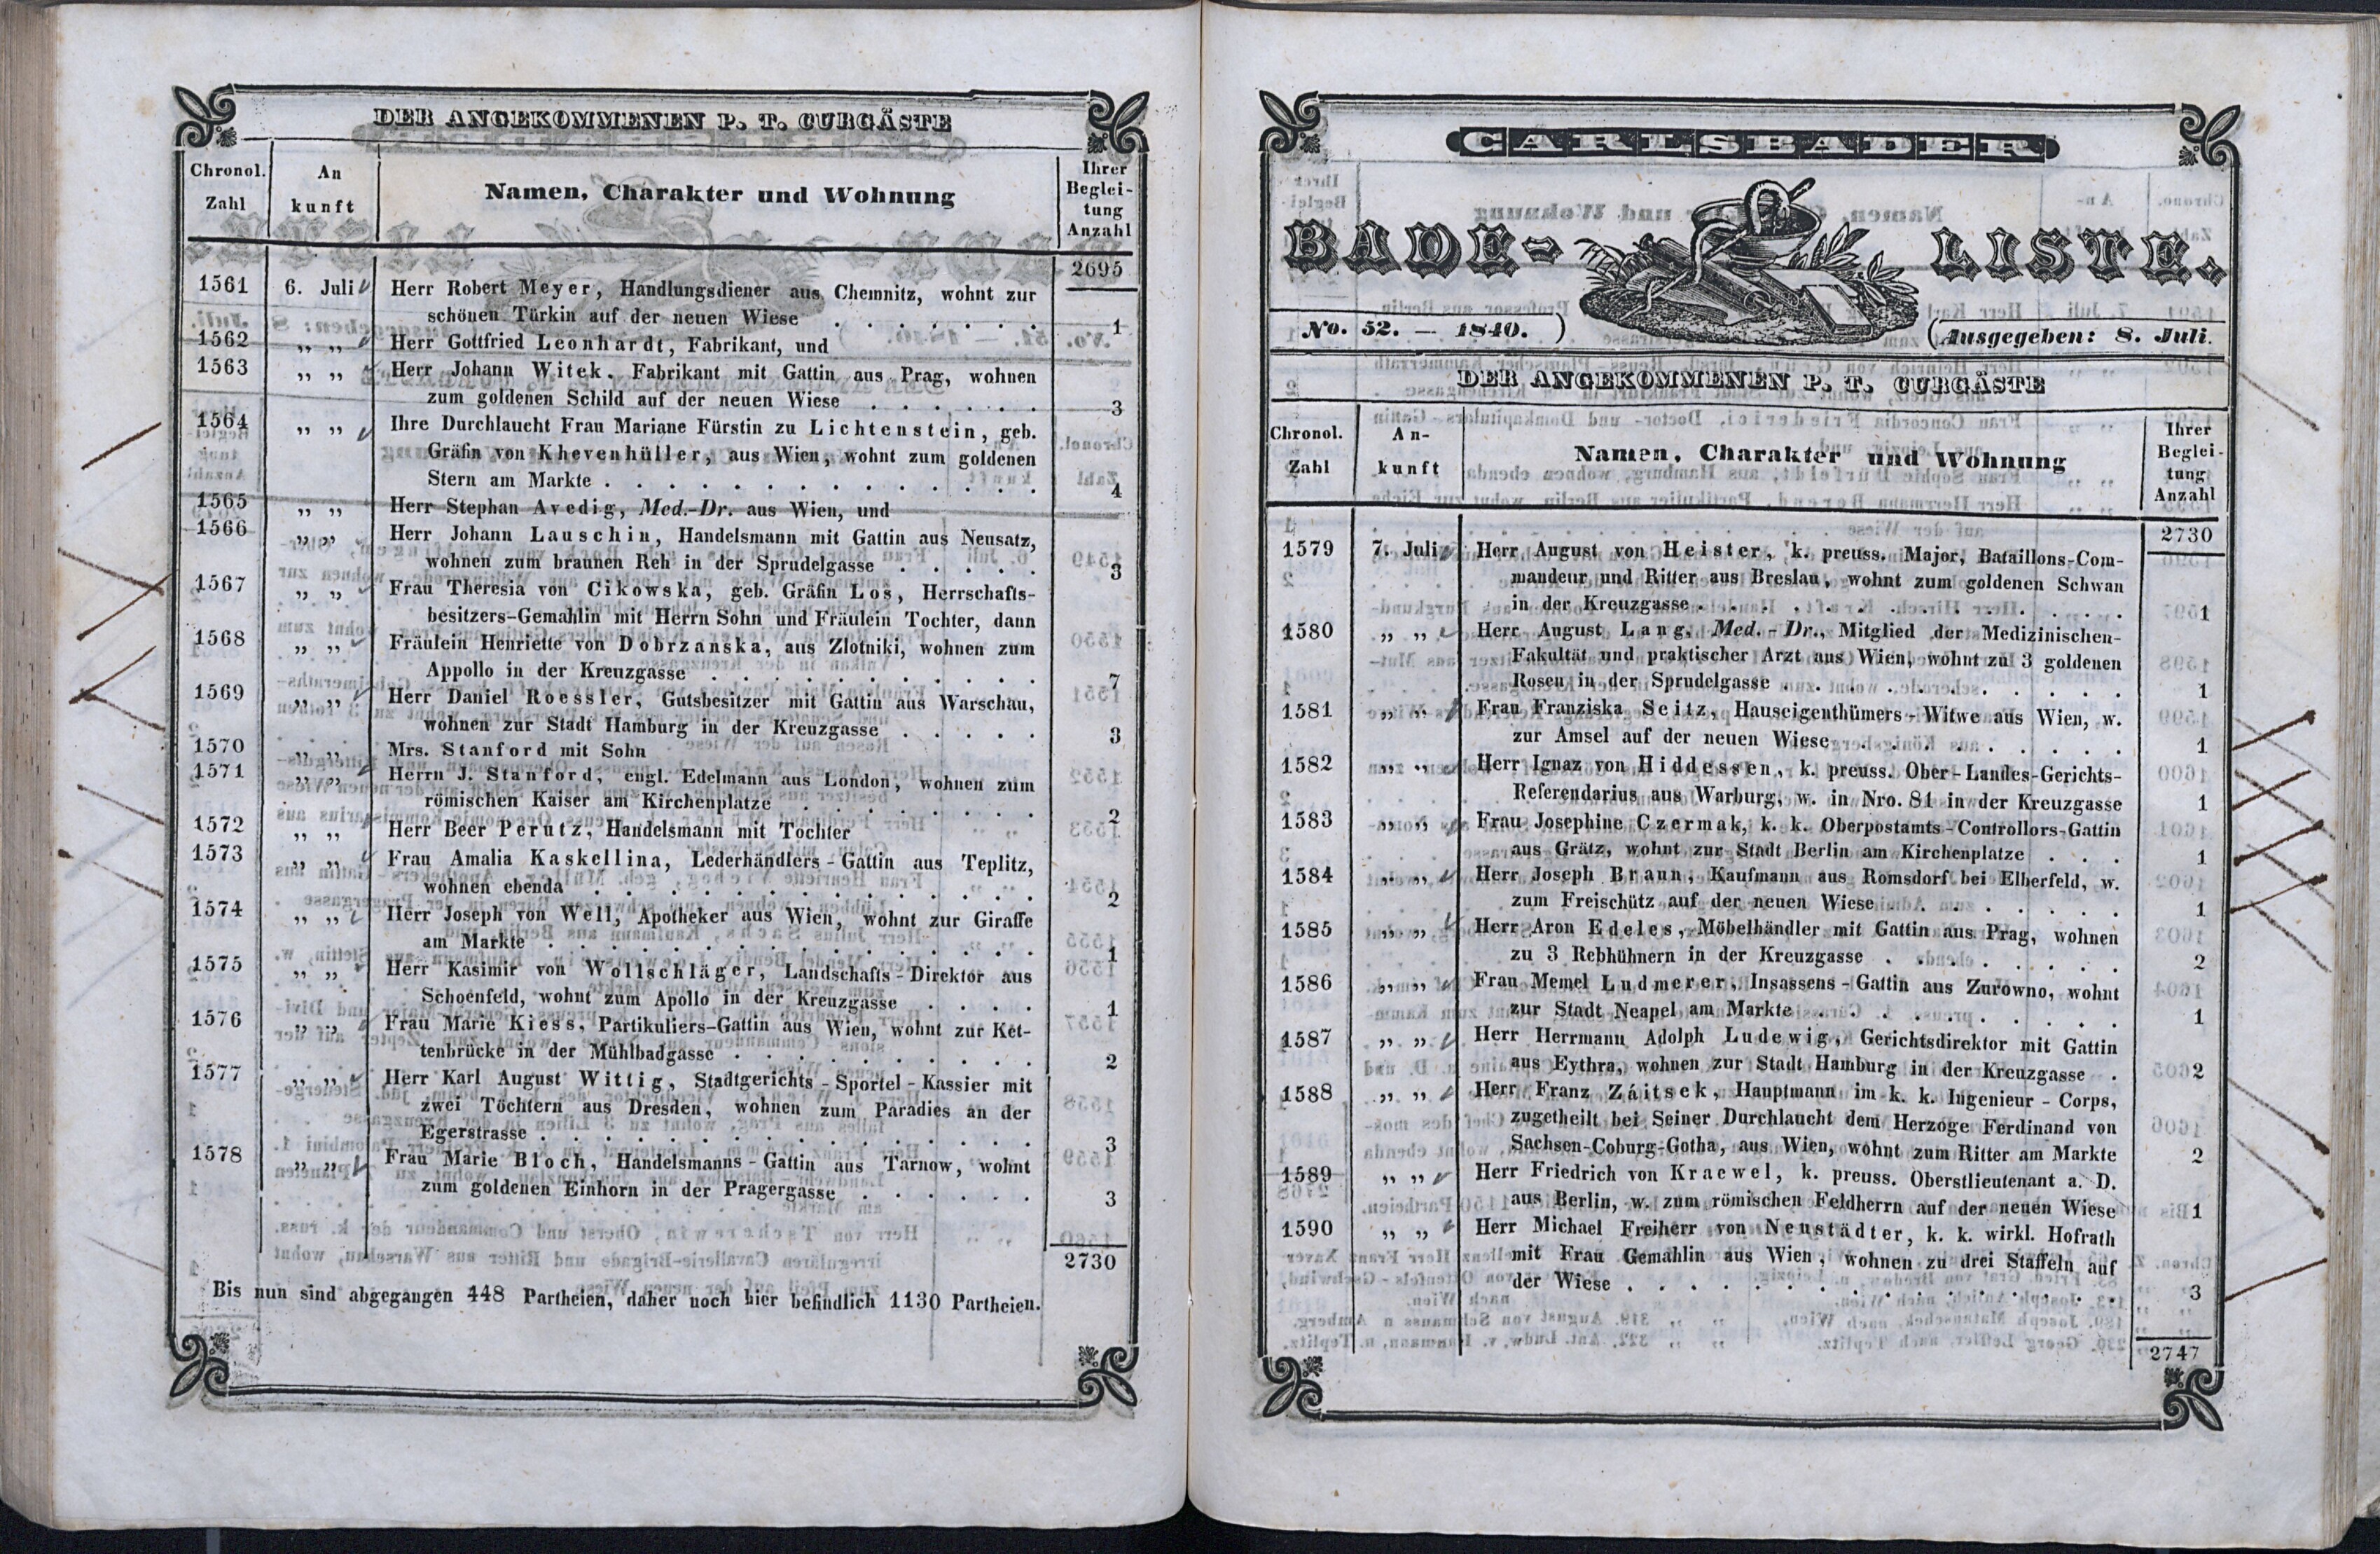 DER ANGEKOMMENEN P. T. CURGÄSTE
Chronol. Zahl
An kunft
Namen, Charakter und Wohnung
Ihrer Beglei- tung Anzahl
2695
1561 6. Juli Herr Robert Meyer, Handlungsdiener aus Chemnitz, wohnt zur
schönen Türkin auf der neuen Wiese . . . . . . . 1
1562 „ „ Herr Gottfried Leonhardt, Fabrikant, und
1563 „ „ Herr Johann Witek. Fabrikant mit Gattin aus Prag, wohnen
zum goldenen Schild auf der neuen Wiese . . . . . . 3
1564 „ „ Ihre Durchlaucht Frau Mariane Fürstin zu Lichtenstein, geb.
Gräfin von Khevenhüller, aus Wien, wohnt zum goldenen
Stern am Markte . . . . . . . . . . . . . . 4
1565 „ „ Herr Stephan Avedig, Med.-Dr. aus Wien, und
1566 „ „ Herr Johann Lauschin, Handelsmann mit Gattin aus Neusatz,
wohnen zum braunen Reh in der Sprudelgasse . . . . . 3
1567 „ „ Frau Theresia von Cikowska, geb. Gräfin Los, Herrschafts-
besitzers-Gemahlin mit Herrn Sohn und Fräulein Tochter, dann
1568 „ „ Fräulein Henriette von Dobrzanska, aus Zlotniki, wohnen zum
Appollo in der Kreuzgasse . . . . . . . . . . . 7
1569 „ „ Herr Daniel Roessler, Gutsbesitzer mit Gattin aus Warschau,
wohnen zur Stadt Hamburg in der Kreuzgasse . . . . . 3
1570 „ „ Mrs. Stanford mit Sohn
1571 „ „ Herrn J. Stanford, engl. Edelmann aus London, wohnen zum
römischen Kaiser am Kirchenplatze . . . . . . . . 2
1572 „ „ Herr Beer Perutz, Handelsmann mit Tochter
1573 „ „ Frau Amalia Kaskellina, Lederhändlers-Gattin aus Teplitz,
wohnen ebenda . . . . . . . . . . . . . . 2
1574 „ „ Herr Joseph von Well, Apotheker aus Wien, wohnt zur Giraffe
am Markte . . . . . . . . . . . . . . . 1
1575 „ „ Herr Kasimir von Wollschläger, Landschafts-Direktor aus
Schoenfeld, wohnt zum Apollo in der Kreuzgasse . . . . 1
1576 „ „ Frau Marie Kiess, Partikuliers-Gattin aus Wien, wohnt zur Ket-
tenbrücke in der Mühlbadgasse . . . . . . . . . . 2
1577 „ „ Herr Karl August Wittig, Stadtgerichts-Sportel-Kassier mit
zwei Töchtern aus Dresden, wohnen zum Paradies an der
Egerstrasse . . . . . . . . . . . . . . . 3
1578 „ „ Frau Marie Bloch, Handelsmanns-Gattin aus Tarnow, wohnt
zum goldenen Einhorn in der Pragergasse . . . . . . 3
2730
Bis nun sind abgegangen 448 Partheien, daher noch hier befindlich 1130 Partheien.
CARLSBADER
BADE- LISTE.
No. 52. — 1840. ) ( Ausgegeben: 8. Juli.
DER ANGEKOMMENEN P. T. CURGÄSTE
Chronol. Zahl
An- kunft
Namen, Charakter und Wohnung
Ihrer Beglei- tung Anzahl
2730
1579 7. Juli Herr August von Heister, k. preuss. Major, Bataillons-Com-
mandeur und Ritter aus Breslau, wohnt zum goldenen Schwan
in der Kreuzgasse . . . . . . . . . . . . . 1
1580 „ „ Herr August Lang, Med.-Dr., Mitglied der Medizinischen-
Fakultät und praktischer Arzt aus Wien, wohnt zu 3 goldenen
Rosen in der Sprudelgasse . . . . . . . . . . . 1
1581 „ „ Frau Franziska Seitz, Hauseigenthümers-Witwe aus Wien, w.
zur Amsel auf der neuen Wiese . . . . . . . . . 1
1582 „ „ Herr Ignaz von Hiddessen, k. preuss. Ober-Landes-Gerichts-
Referendarius aus Warburg, w. in Nro. 81 in der Kreuzgasse 1
1583 „ „ Frau Josephine Czermak, k. k. Oberpostamts-Controllors-Gattin
aus Grätz, wohnt zur Stadt Berlin am Kirchenplatze . . . 1
1584 „ „ Herr Joseph Braun, Kaufmann aus Romsdorf bei Elberfeld, w.
zum Freischütz auf der neuen Wiese . . . . . . . 1
1585 „ „ Herr Aron Edeles, Möbelhändler mit Gattin aus Prag, wohnen
zu 3 Rebhühnern in der Kreuzgasse . . . . . . . . 2
1586 „ „ Frau Memel Ludmerer, Insassens-Gattin aus Zurowno, wohnt
zur Stadt Neapel am Markte . . . . . . . . . . 1
1587 „ „ Herr Herrmann Adolph Ludewig, Gerichtsdirektor mit Gattin
aus Eythra, wohnen zur Stadt Hamburg in der Kreuzgasse . 2
1588 „ „ Herr Franz Záitsek, Hauptmann im k. k. Ingenieur-Corps,
zugetheilt bei Seiner Durchlaucht dem Herzoge Ferdinand von
Sachsen-Coburg-Gotha, aus Wien, wohnt zum Ritter am Markte 2
1589 „ „ Herr Friedrich von Kracwel, k. preuss. Oberstlieutenant a. D.
aus Berlin, w. zum römischen Feldherrn auf der neuen Wiese 1
1590 „ „ Herr Michael Freiherr von Neustädter, k. k. wirkl. Hofrath
mit Frau Gemahlin aus Wien, wohnen zu drei Staffeln auf
der Wiese . . . . . . . . . . . . . . . 3
2747